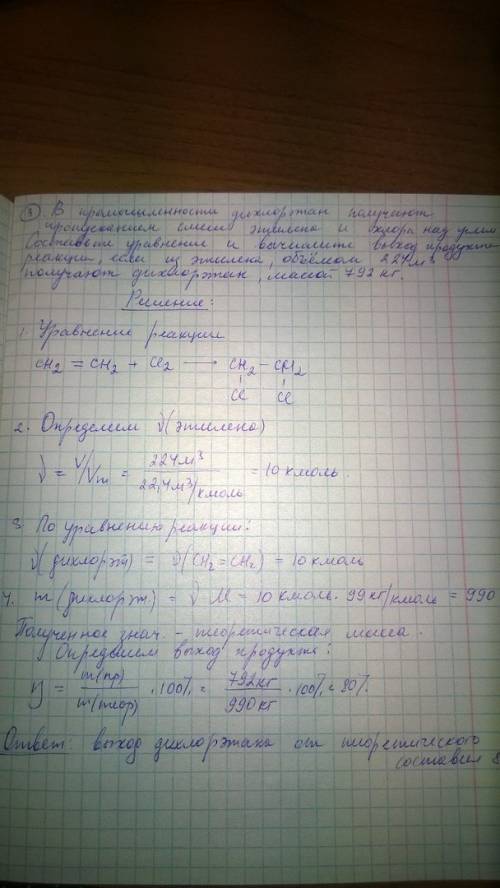 ③ В промышленности дихлорэтан получают
пропусканием смеси этилена и хлора над углём
Составьте уравнение и вычислите выход продукта
реакции, если из этилена, объёмом 224м³
получают дихлорэтан, массой 792 кг.
Решение:
1. Уравнение реакции
CH₂ = CH₂ + Cl₂ ⟶ CH₂ – CH₂
Cl Cl
2. Определяем ν(этилена)
ν = V/Vm = 224м³ / 22,4м³/кмоль = 10 кмоль.
3. По уравнению реакции:
ν(дихлорэт) = ν(CH₂=CH₂) = 10 кмоль
4. m(дихлорэт.) = ν M = 10 кмоль · 99 кг/кмоль = 990
Полученное знач. – теоретическая масса.
Определяем выход продукта:
η = m(пр) / m(теор) · 100% = 792кг / 990кг · 100% = 80%.
Ответ: выход дихлорэтана от теоретического
составил 8